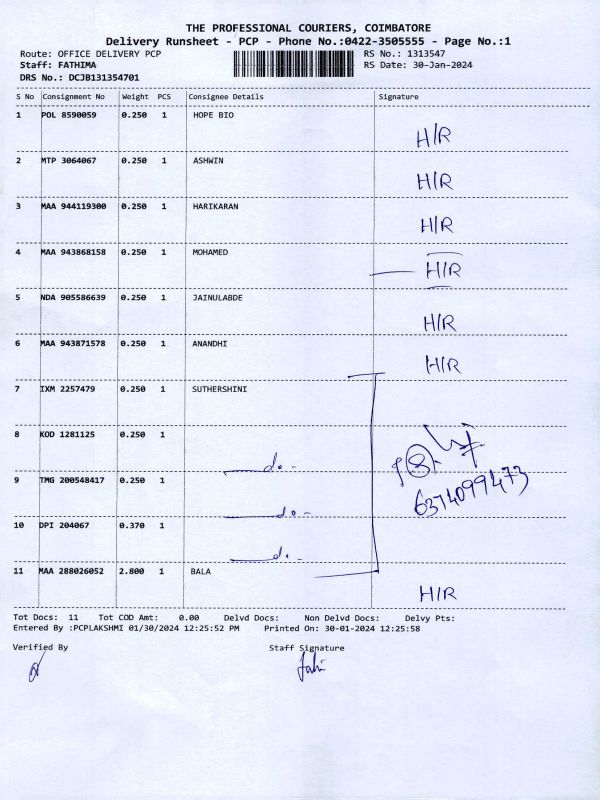 THE PROFESSIONAL COURIERS, COIMBATORE
Delivery Runsheet - PCP - Phone No.:0422-3505555 - Page No.:1
Route: OFFICE DELIVERY PCP RS No.: 1313547
Staff: FATHIMA RS Date: 30-Jan-2024
DRS No.: DCJB131354701
S No Consignment No Weight PCS Consignee Details Signature
1 POL 8590059 0.250 1 HOPE BIO H/R
2 MTP 3064067 0.250 1 ASHWIN H/R
3 MAA 944119300 0.250 1 HARIKARAN H/R
4 MAA 943868158 0.250 1 MOHAMED H/R
5 NDA 905586639 0.250 1 JAINULABDE H/R
6 MAA 943871578 0.250 1 ANANDHI H/R
7 IXM 2257479 0.250 1 SUTHERSHINI
8 KOD 1281125 0.250 1 do -
9 TMG 200548417 0.250 1 do - 6374099473
10 DPI 204067 0.370 1 do -
11 MAA 288026052 2.800 1 BALA H/R
Tot Docs: 11 Tot COD Amt: 0.00 Delvd Docs: Non Delvd Docs: Delvy Pts:
Entered By :PCPLAKSHMI 01/30/2024 12:25:52 PM Printed On: 30-01-2024 12:25:58
Verified By Staff Signature